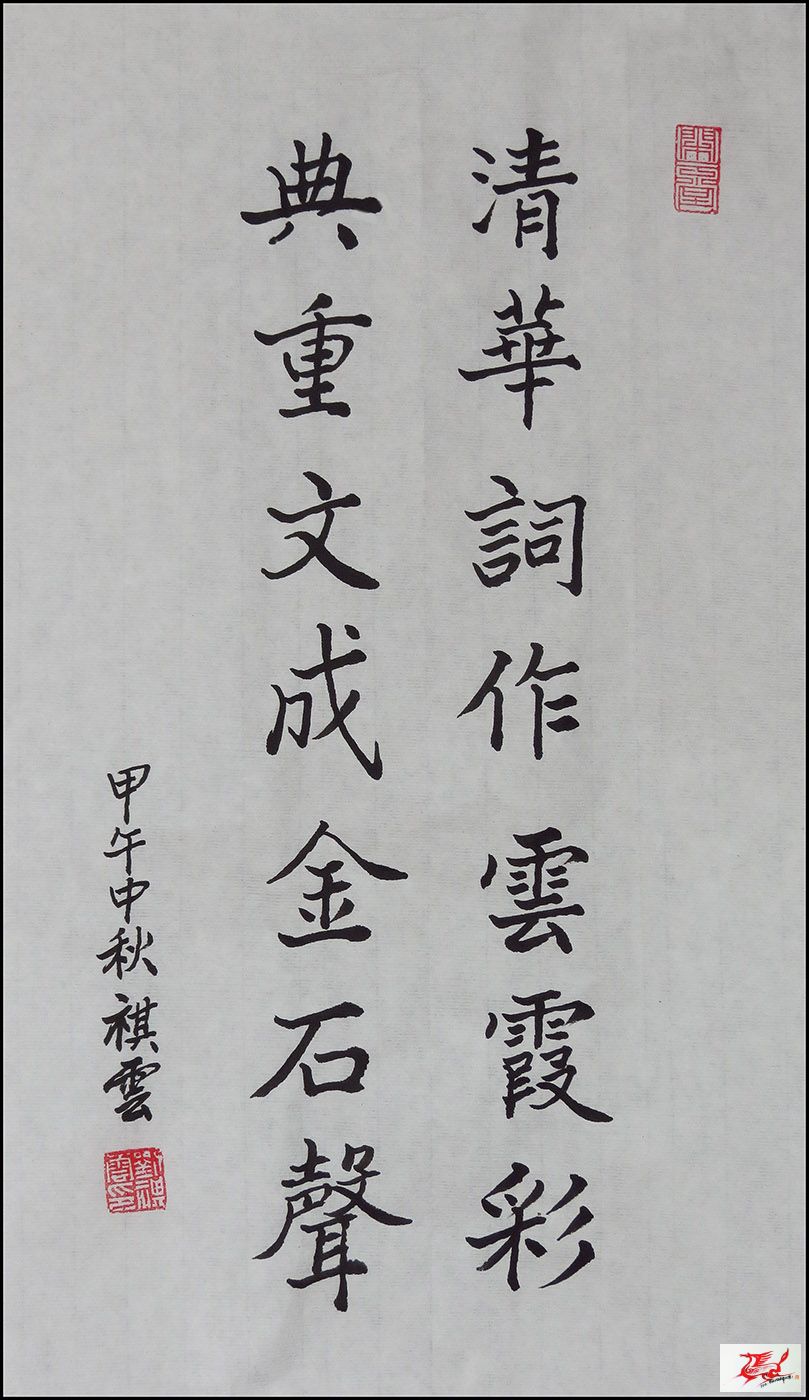 清華詞作雲霞彩
典重文成金石聲
甲午中秋祺雲